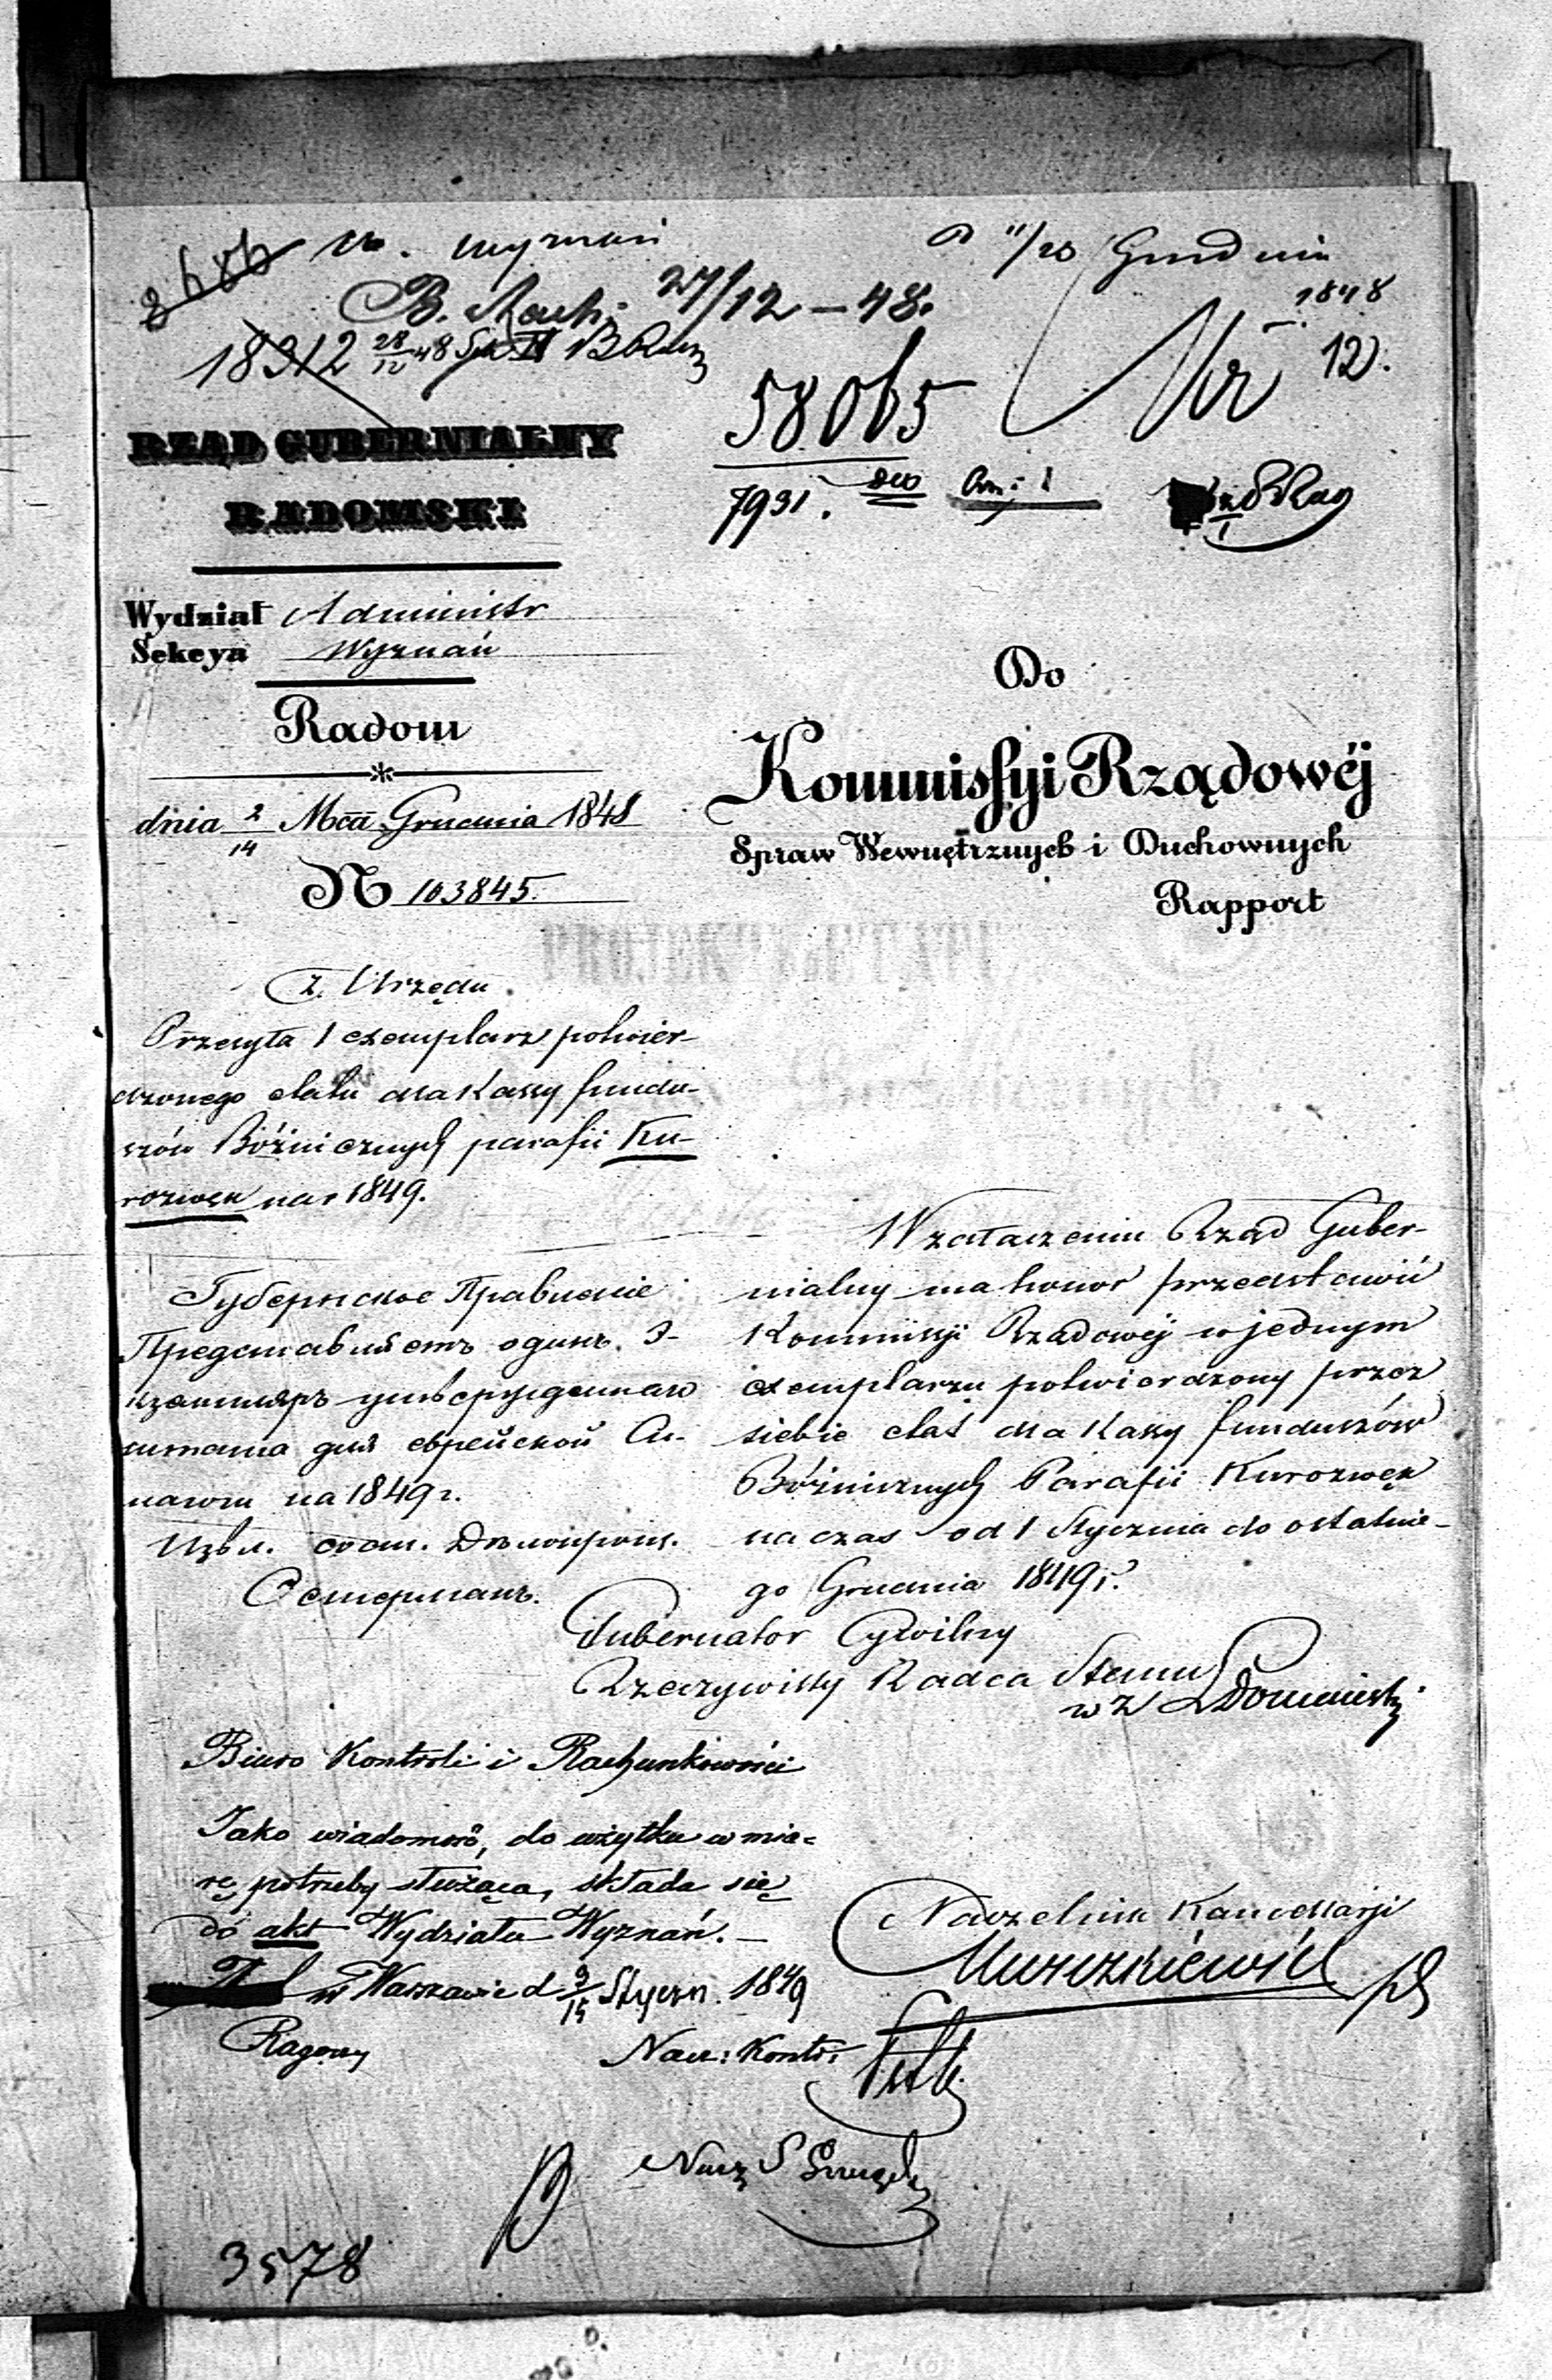 W. Wyznań
27/12 – 48.
18312 28/12 48
1848
58065
Nr 12.
7931.
RZĄD GUBERNIALNY
RADOMSKI
Wydział Administr
Sekcya Wyznań
Radom
dnia 2/14 Mca Grudnia 1848
N 103845.
Do
Kommissyi Rządowéj
Spraw Wewnętrznych i Duchownych
Rapport
Z Urzędu.
Przesyła 1 exemplarz potwier-
dzonego etatu dla Kassy fundu-
szów Bóżniczych parafii Ku-
rozwęk na r 1849.
Губернское Правленіе
Представляетъ одинъ Э-
кземпляръ утвержденнаго
штата для еврейской Си-
нагоги на 1849 г.
Остерманъ.
W załączeniu Rząd Guber-
nialny ma honor przedstawić
Kommissyi Rządowéj w jednym
exemplarzu potwierdzony przez
siebie etat dla Kassy funduszów
Bóżniczych Parafii Kurozwęk
na czas od 1 Stycznia do ostatnie-
go Grudnia 1849 r.
Gubernator Cywilny
Rzeczywisty Radca Stanu
w z
Biuro Kontroli i Rachunkowości
Jako wiadomość, do użytku w mia-
rę potrzeby służąca, składa się
do akt Wydziału Wyznań. —
w Warszawie d 3/15 Styczn. 1849
Naczelnik Kancellaryi
Nacz: Kontr:
Nacz S
3578